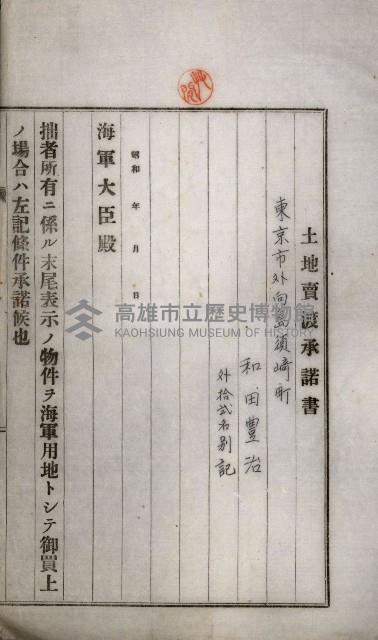 土地賣渡承諾書
東京市外向島須崎町
和田豐治
外拾弐名別記
昭和　年　月　日
海軍大臣殿
拙者所有ニ係ル末尾表示ノ物件ヲ海軍用地トシテ御買上
ノ場合ハ左記條件承諾候也
高雄市立歷史博物館
KAOHSIUNG MUSEUM OF HISTORY